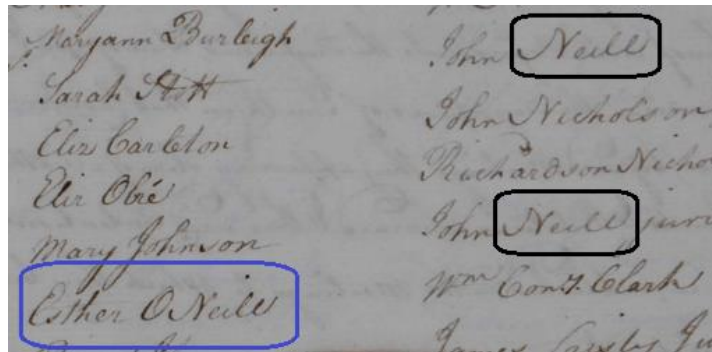 Maryann Burleigh
Sarah Stott
Eliz Carleton
Eliz Obré
Mary Johnson
Esther O Neill
John Neill
John Nicholson
Richardson Nicho
John Neill juni
Wm Conz. Clark
James